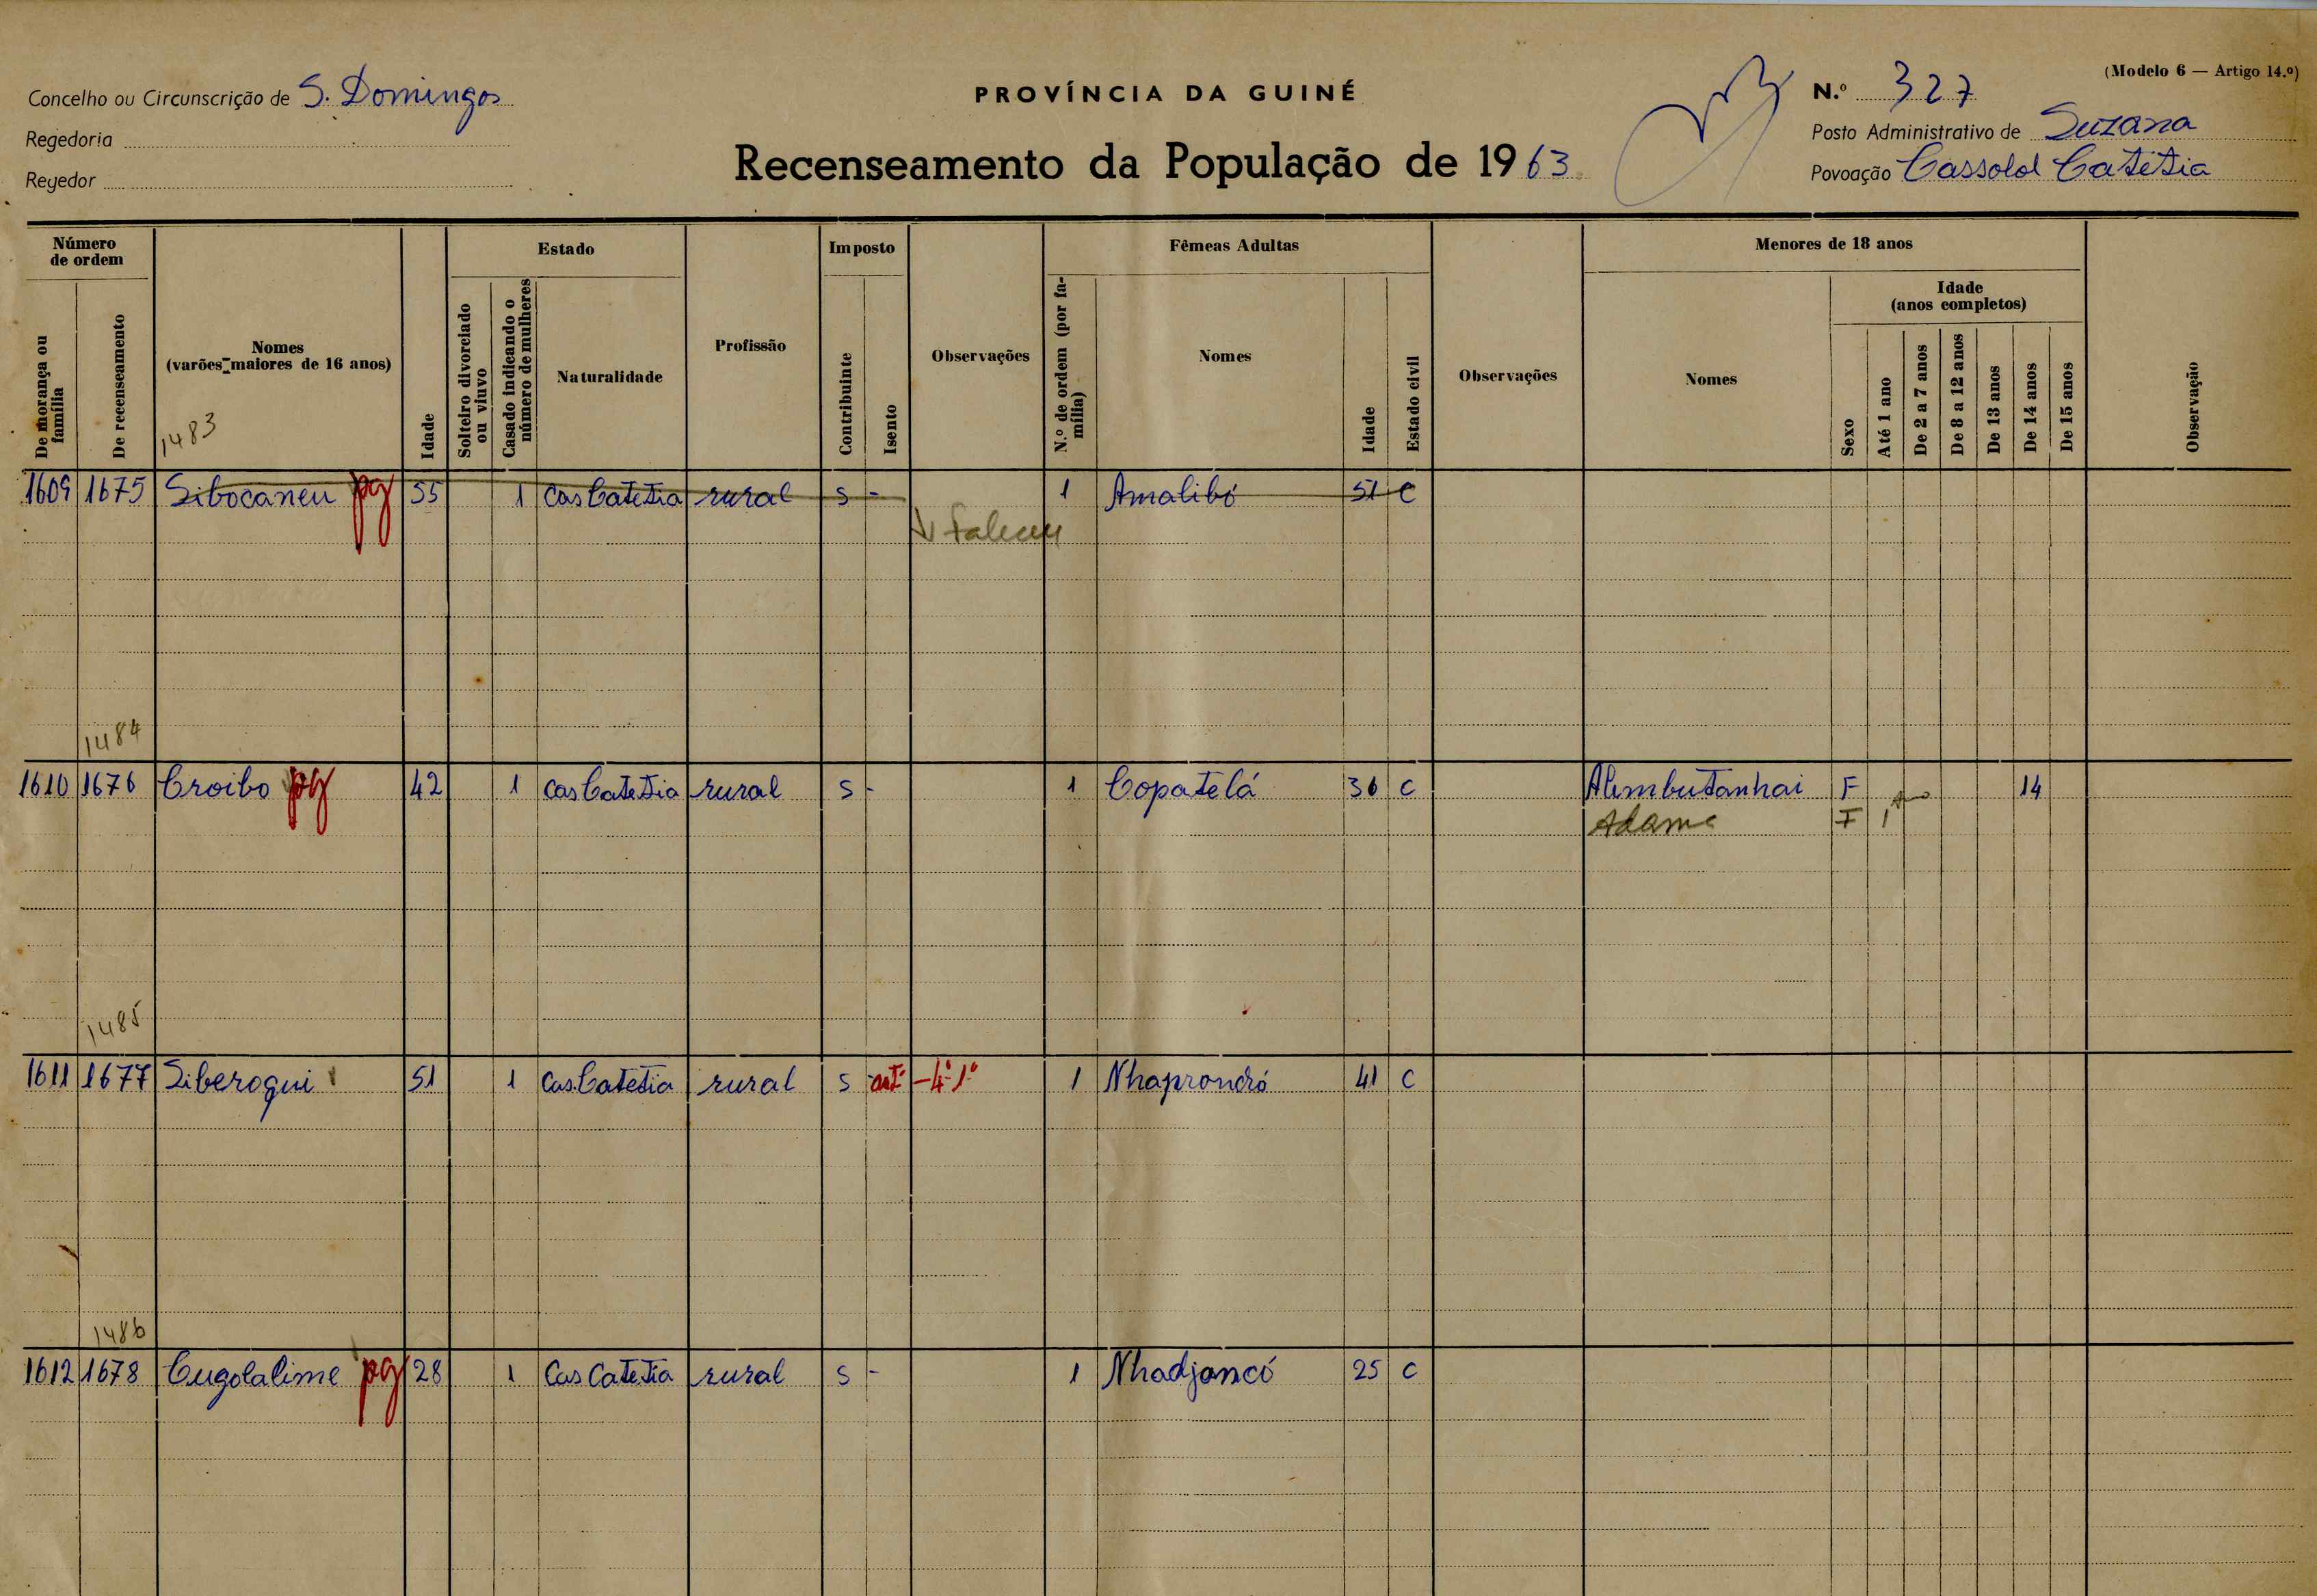 (Modelo 6 — Artigo 14.º)
Concelho ou Circunscrição de S. Domingos
PROVÍNCIA DA GUINÉ
N.º 327
Regedoria
Posto Administrativo de Suzana
Recenseamento da População de 1963
Regedor
Povoação Cassolol Catetia
Número de ordem
Estado
Imposto
Fêmeas Adultas
Menores de 18 anos
De morança ou família
De recenseamento
Nomes (varões maiores de 16 anos)
Idade
Solteiro divorciado ou viuvo
Casado indicando o número de mulheres
Naturalidade
Profissão
Contribuinte
Isento
Observações
N.º de ordem (por família)
Nomes
Idade
Estado civil
Observações
Nomes
Sexo
Idade (anos completos)
Até 1 ano
De 2 a 7 anos
De 8 a 12 anos
De 13 anos
De 14 anos
De 15 anos
Observação
1483
1609 1675 Sibocaneu pg 55 1 Cas Catetia rural S - 1 Amalibó 51 C
1484
1610 1676 Croibo pg 42 1 Cas Catetia rural S - 1 Copatelá 36 C Alimbutanhai F 14
Adama F 1
1485
1611 1677 Siberoqui 51 1 Cas Catetia rural S artº - 4º 1º 1 Nhaprondró 41 C
1486
1612 1678 Cugolalime pg 28 1 Cas Catetia rural S - 1 Nhadjancó 25 C